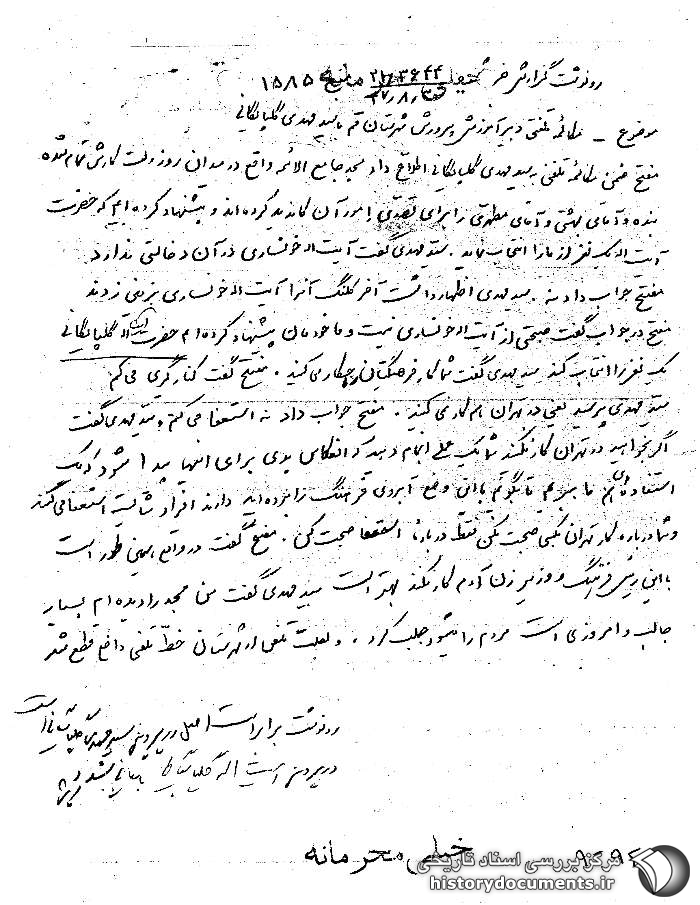 رونوشت گزارش خبر منبع ۱۵۸۵
۲۱/۳۶۴۴
موضوع – مکالمه تلفنی دبیر آموزش پرورش شهرستان قم با سید مهدی گلپایگانی
مفتح ضمن مکالمه تلفنی به سید مهدی گلپایگانی اطلاع داد مسجد جامع الائمه واقع در میدان روزولت کارش تمام شده
بنده و آقای بهشتی و آقای مطهری را برای تصدی امور آن کاندید کرده‌اند و پیشنهاد کرده‌ایم که حضرت
آیت اله یک نفر از ما را انتخاب نماید. سید مهدی گفت آیت اله خونساری در آن دخالتی ندارد
مفتح جواب داد نه. سید مهدی اظهار داشت آخر کلنگ آنرا آیت اله خونساری بزمین زدند
مفتح در جواب گفت صحبتی از آیت اله خونساری نیست و ما خودمان پیشنهاد کرده‌ایم حضرت آیت اله گلپایگانی
یک نفر را انتخاب کند سید مهدی گفت شما کار فرهنگتان را چکار می‌کنید. مفتح گفت کناره‌گیری می‌کنم
سید مهدی پرسید یعنی در تهران هم کار نمی‌کنید. مفتح جواب داد نه استعفا می‌کنم و سید مهدی گفت
اگر بخواهید در تهران کار نکنید شما یک عملی انجام دهید که انعکاس بدی برای اینها پیدا شود که یک
استفاده‌ای هم ما ببریم تا بگوئیم با این وضع آبروی فرهنگ را برده‌اید دارند افراد شایسته استعفا می‌کنند
و شما درباره کار تهران نکنی صحبت نکن فقط درباره استعفا صحبت کن. مفتح گفت در واقع همینطور است
با این رئیس فرهنگ و وزیر زن آدم کار نکند بهتر است سید مهدی گفت من مسجد را دیده‌ام بسیار
جالب و امروزی است مردم را میشود جلب کرد. و بعلت تلفنی از شهرستان خط تلفنی داخل قطع شد
رونوشت برابر است اصل در پرونده سید مهدی گلپایگانی است
در پرونده آیت اله گلپایگانی بایگانی شود
خیلی محرمانه
مرکز بررسی اسناد تاریخی
historydocuments.ir